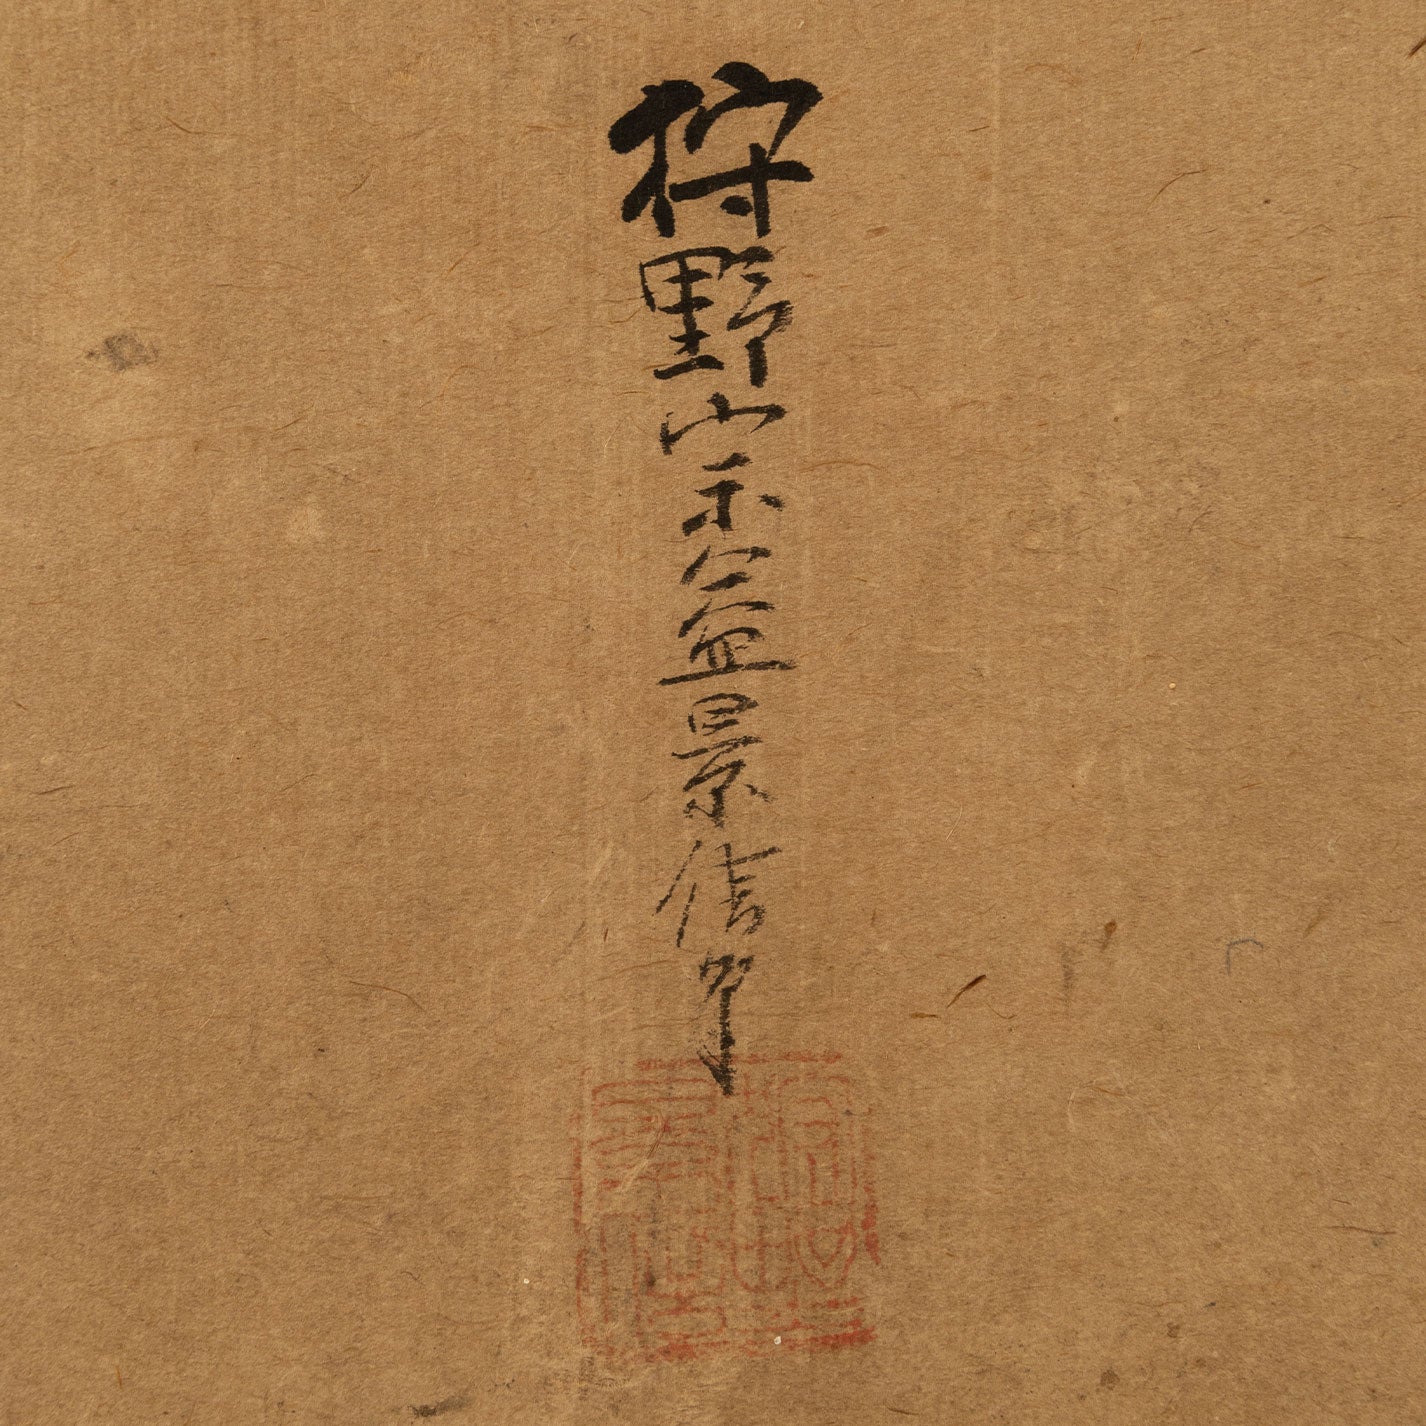 狩野宗益景信筆